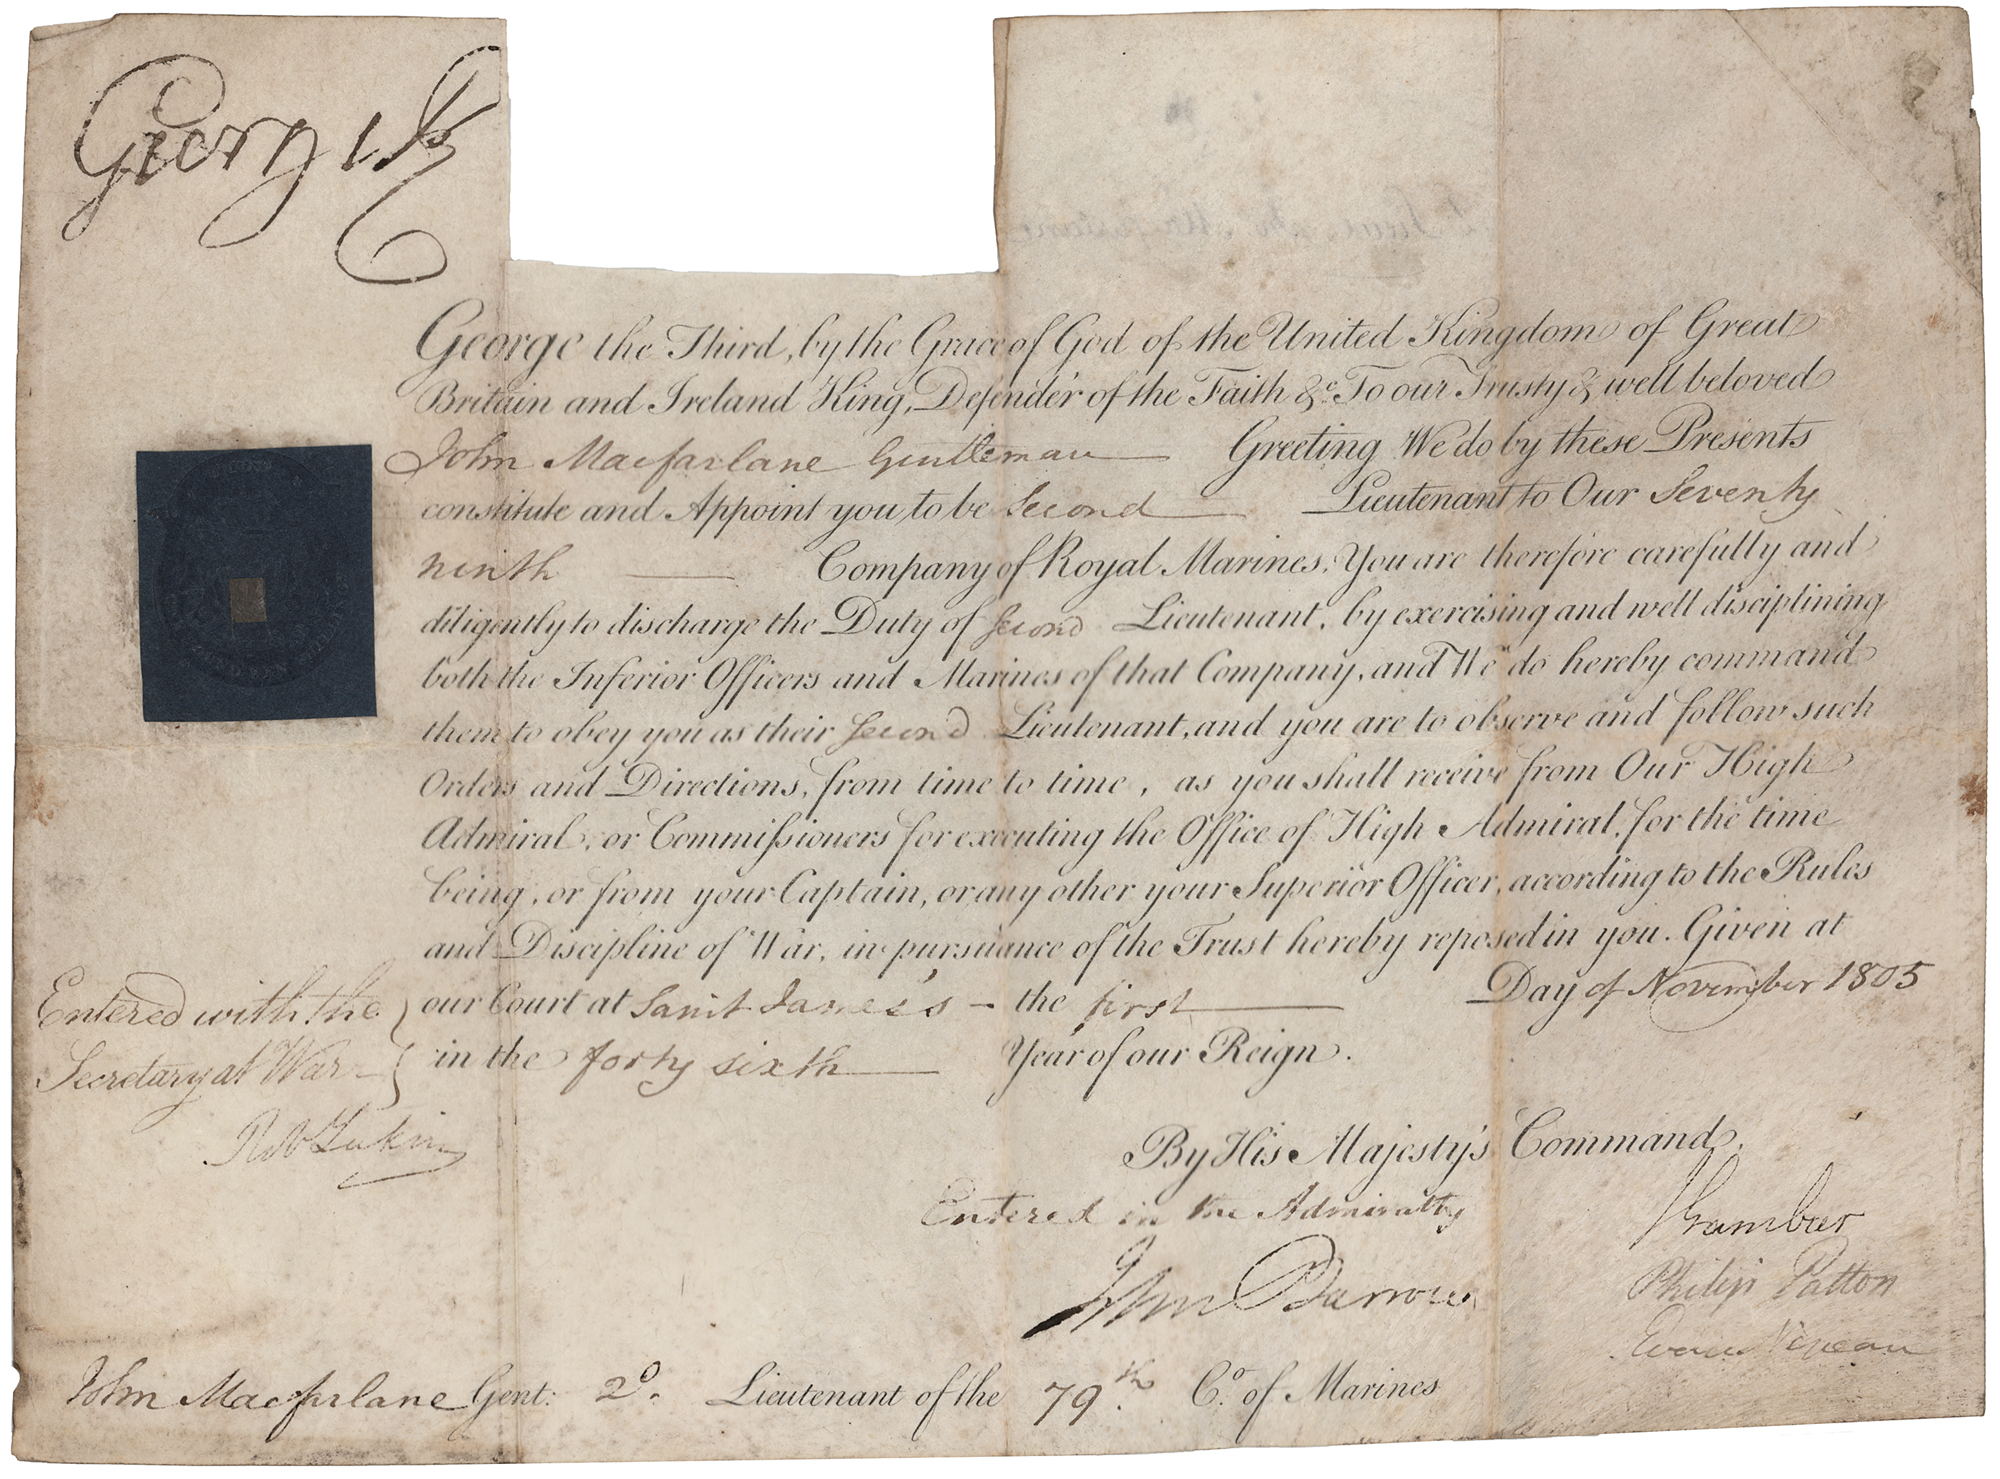 George R
George the Third, by the Grace of God of the United Kingdom of Great
Britain and Ireland King, Defender of the Faith &c. To our Trusty & well beloved
John Macfarlane Gentleman Greeting We do by these Presents
constitute and Appoint you to be Second Lieutenant to Our Seventy
ninth Company of Royal Marines, You are therefore carefully and
diligently to discharge the Duty of Second Lieutenant, by exercising and well disciplining
both the Inferior Officers and Marines of that Company, and We do hereby command
them to obey you as their Second Lieutenant, and you are to observe and follow such
Orders and Directions, from time to time, as you shall receive from Our High
Admiral, or Commissioners for executing the Office of High Admiral, for the time
being, or from your Captain, or any other your Superior Officer, according to the Rules
and Discipline of War, in pursuance of the Trust hereby reposed in you. Given at
our Court at Saint James's – the first Day of November 1805
in the forty sixth Year of our Reign.
Entered with the
Secretary at War
By His Majesty's Command,
Entered in the Admiralty
John Barrow
Gambier
Philip Patton
Evan Nepean
John Macfarlane Gent: 2d. Lieutenant of the 79th. Co. of Marines